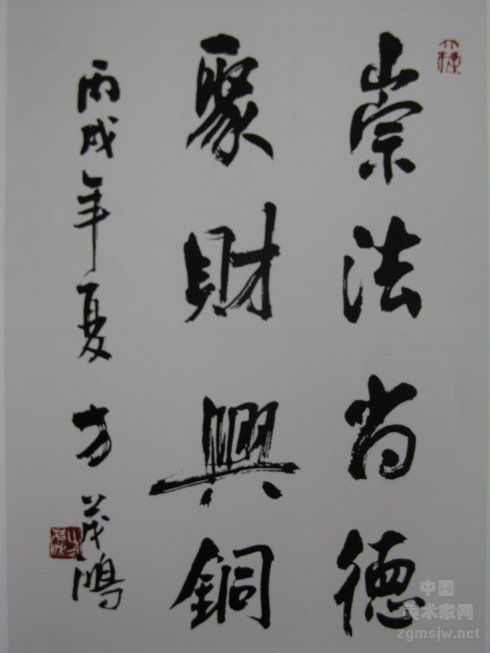 崇法尚德
聚財興銅
丙戌年夏 方茂鴻
中国
美术家网
zgmsjw.net